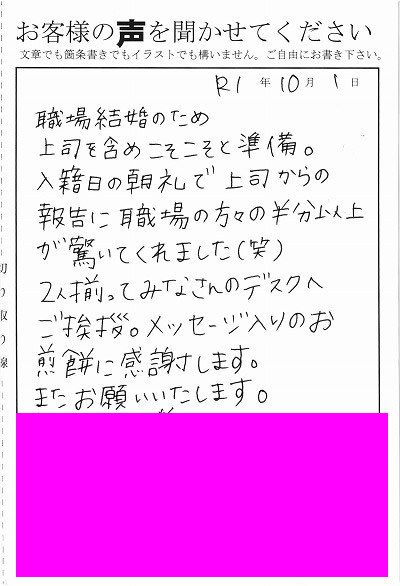 お客様の声を聞かせてください
文章でも箇条書きでもイラストでも構いません。ご自由にお書き下さい。
R1年10月1日
職場結婚のため
上司を含めこそこそと準備。
入籍日の朝礼で上司からの
報告に職場の方々の半分以上
が驚いてくれました(笑)
2人揃ってみなさんのデスクへ
ご挨拶。メッセージ入りのお
煎餅に感謝します。
またお願いいたします。
切り取り線